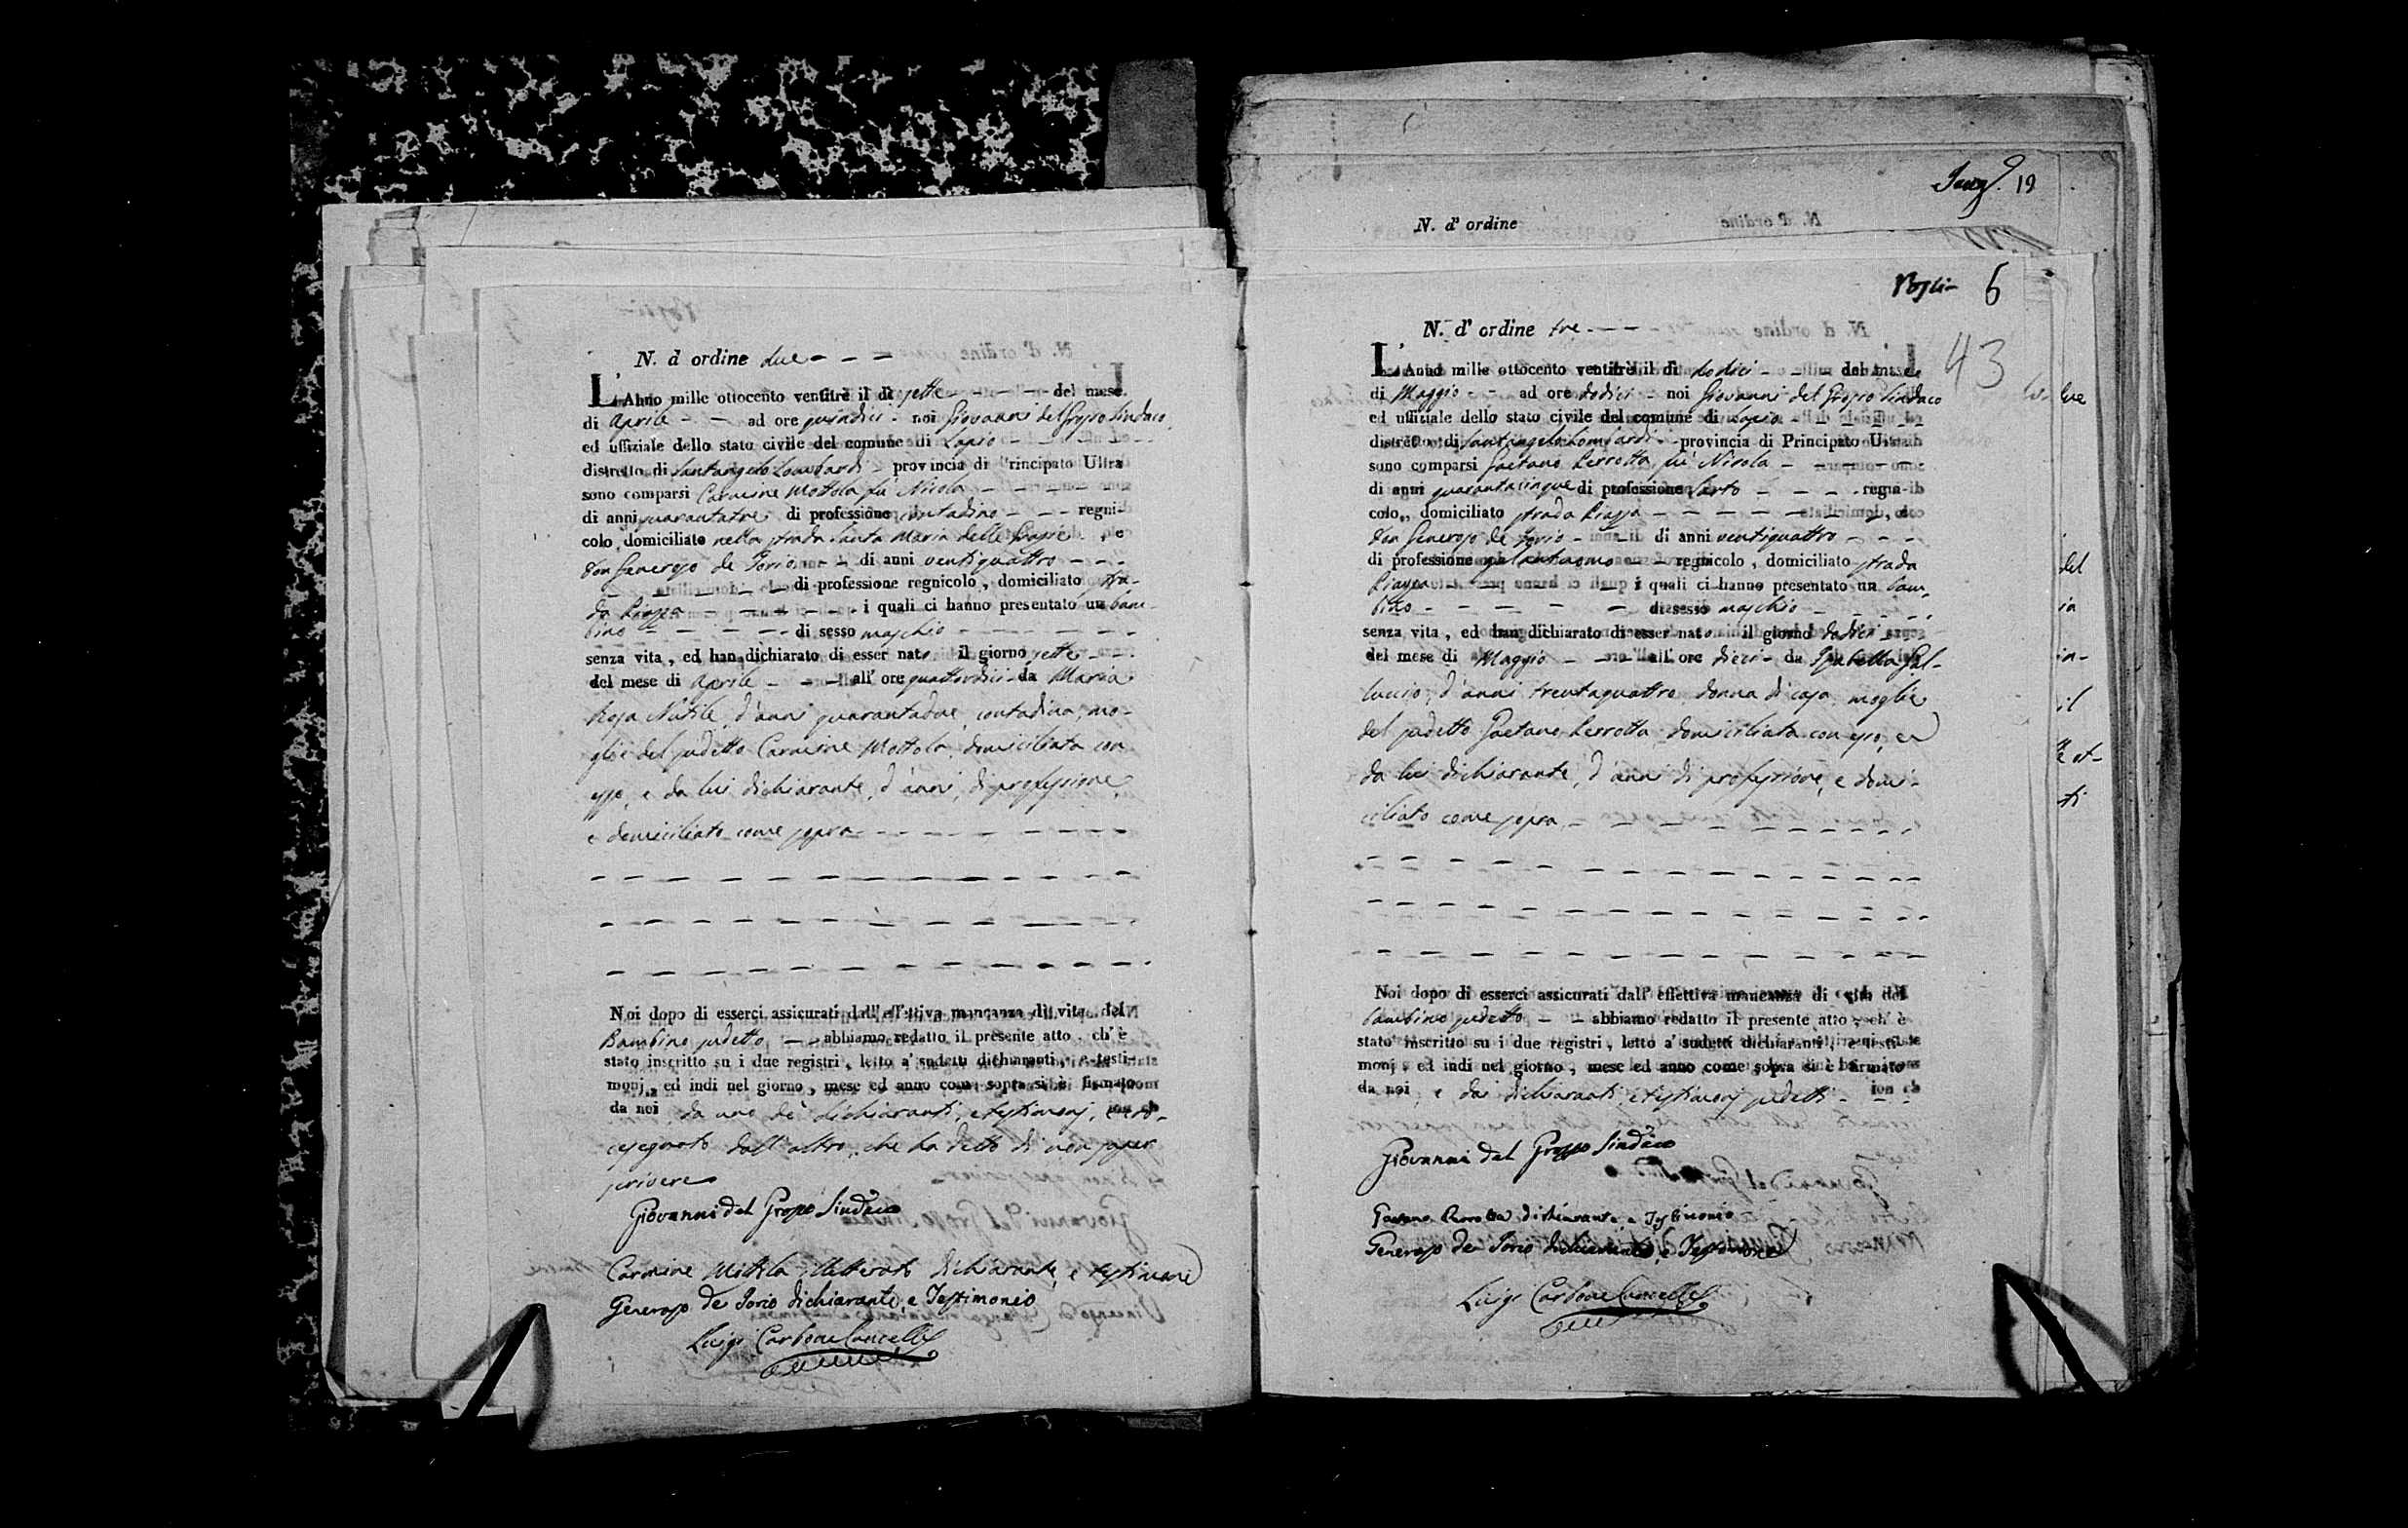 N. d' ordine due - - -
L'Anno mille ottocento ventitrè il dì sette - - - - del mese
di Aprile - - ad ore quindici - noi Giovanni del Grosso Sindaco
ed uffiziale dello stato civile del comune di Lapio - - - -
distretto di Santangelo Lombardi - provincia di Principato Ultra
sono comparsi Carmine Mottola fù Nicola - - - - -
di anni quarantatre di professione contadino - - - regni-
colo, domiciliato nella strada Santa Maria delle Grazie , e
Don Generoso de Iorio - - di anni ventiquattro - - -
- - - - di professione regnicolo, domiciliato stra-
da Piazza - - - - - - i quali ci hanno presentato un bam-
bino - - - - di sesso maschio - - - - -
senza vita, ed han dichiarato di esser nato il giorno sette - -
del mese di Aprile - - - all' ore quattordici - da Maria
Rosa Nutile, d'anni quarantadue, contadina, mo-
glie del sudetto Carmine Mottola, domiciliata con
esso, e da lui dichiarante, d'anni, di professione,
e domiciliato come sopra - - - - - - -
Noi dopo di esserci assicurati dall' effettiva mancanza di vita del
Bambino sudetto - - abbiamo redatto il presente atto, ch' è
stato inscritto su i due registri, letto a' sudetti dichiaranti, e testi-
monj, ed indi nel giorno, mese ed anno come sopra si è firmato
da noi da uno de' dichiaranti, e testimonj, e cro-
cesegnato dall' altro, che ha detto di non saper
scrivere
Giovanni del Grosso Sindaco
Carmine Mottola illetterato dichiarante, e testimone
Generoso de Iorio dichiarante, e Testimonio
Luigi Carbone Cancell.
Jung. 19
N. d' ordine
Pogli- 6
43
N. d' ordine tre - - - -
L'Anno mille ottocento ventitrè il dì dodici - - - del mese
di Maggio - - ad ore dodici - noi Giovanni del Grosso Sindaco
ed uffiziale dello stato civile del comune di Lapio - - - -
distretto di Santangelo Lombardi - provincia di Principato Ultra
sono comparsi Gaetano Perrotta fù Nicola - - - - -
di anni quarantacinque di professione Sarto - - - - regni-
colo, domiciliato strada Piazza - - - - - - - , e
Don Generoso de Iorio - - - di anni ventiquattro - - -
di professione galantuomo - - regnicolo, domiciliato strada
Piazza - - - - - i quali ci hanno presentato un bam-
bino - - - - - di sesso maschio - - - -
senza vita, ed han dichiarato di esser nato il giorno dodici - -
del mese di Maggio - - - all' ore dieci - da Isabella Gal-
luccio, d'anni trentaquattro donna di casa moglie
del sudetto Gaetano Perrotta domiciliata con esso, e
da lui dichiarante, d'anni di professione, e domi-
ciliato come sopra - - - - - - - -
Noi dopo di esserci assicurati dall' effettiva mancanza di vita del
bambino sudetto - - abbiamo redatto il presente atto, ch' è
stato inscritto su i due registri, letto a' sudetti dichiaranti, e testi-
monj, ed indi nel giorno, mese ed anno come sopra si è firmato
da noi, e dai dichiaranti, e testimonj sudetti - - -
Giovanni del Grosso Sindaco
Gaetano Perrotta dichiarante, e Testimonio
Generoso de Iorio dichiarante, e Testimonio
Luigi Carbone Cancell.